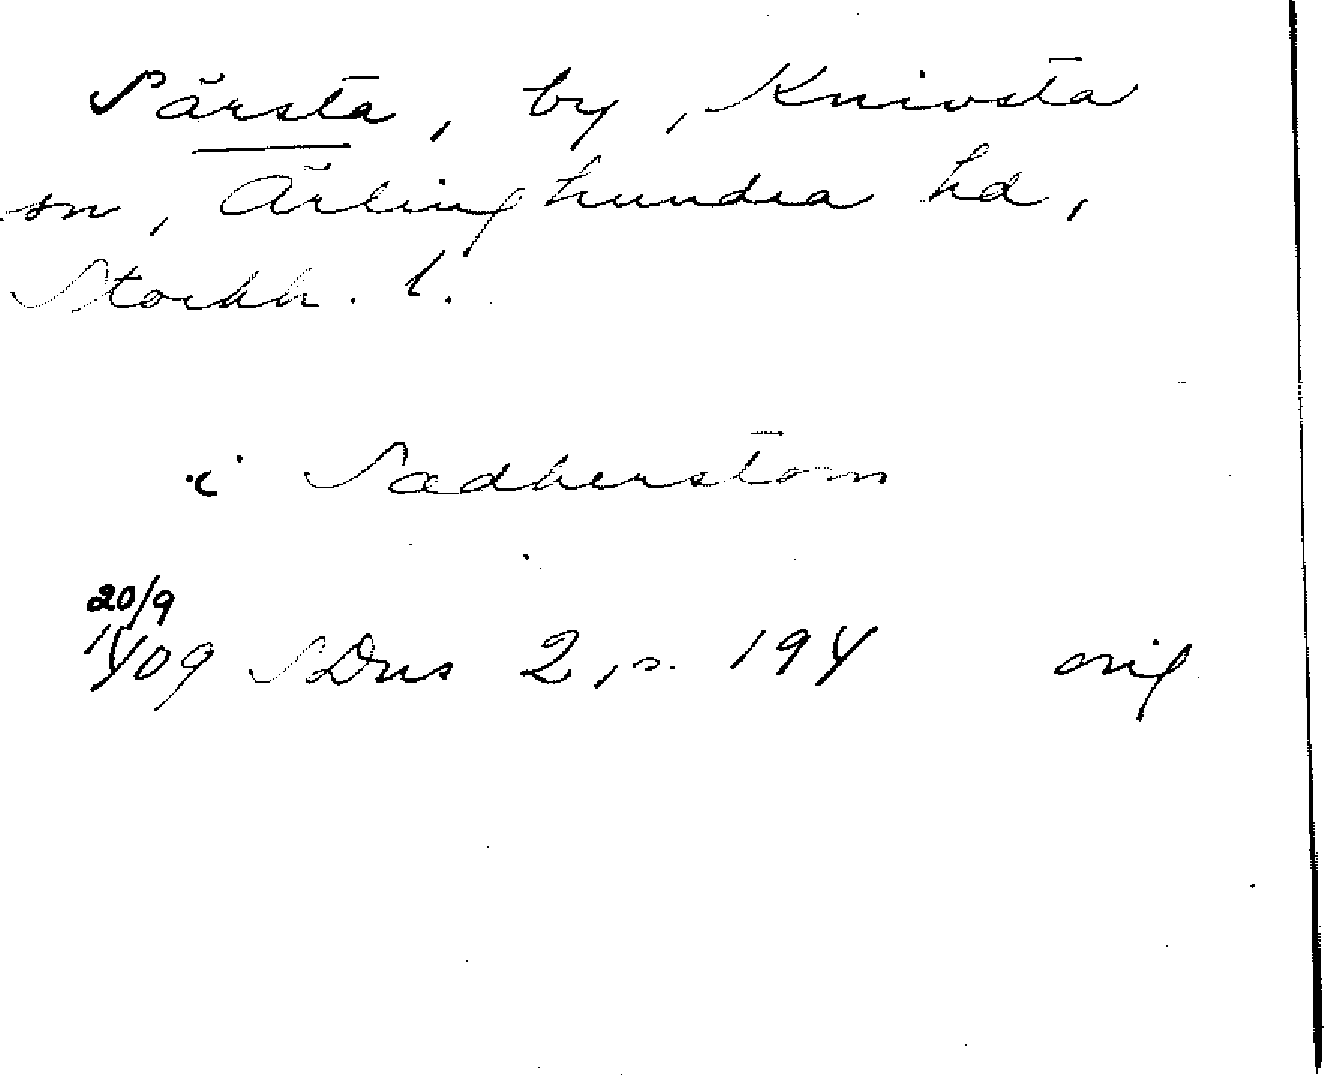 Särsta, by, Knivsta
sn, Ärlinghundra hd,
Stockh. l.
i Sædherstom
20/9
1409 SDns 2, s. 194 orig